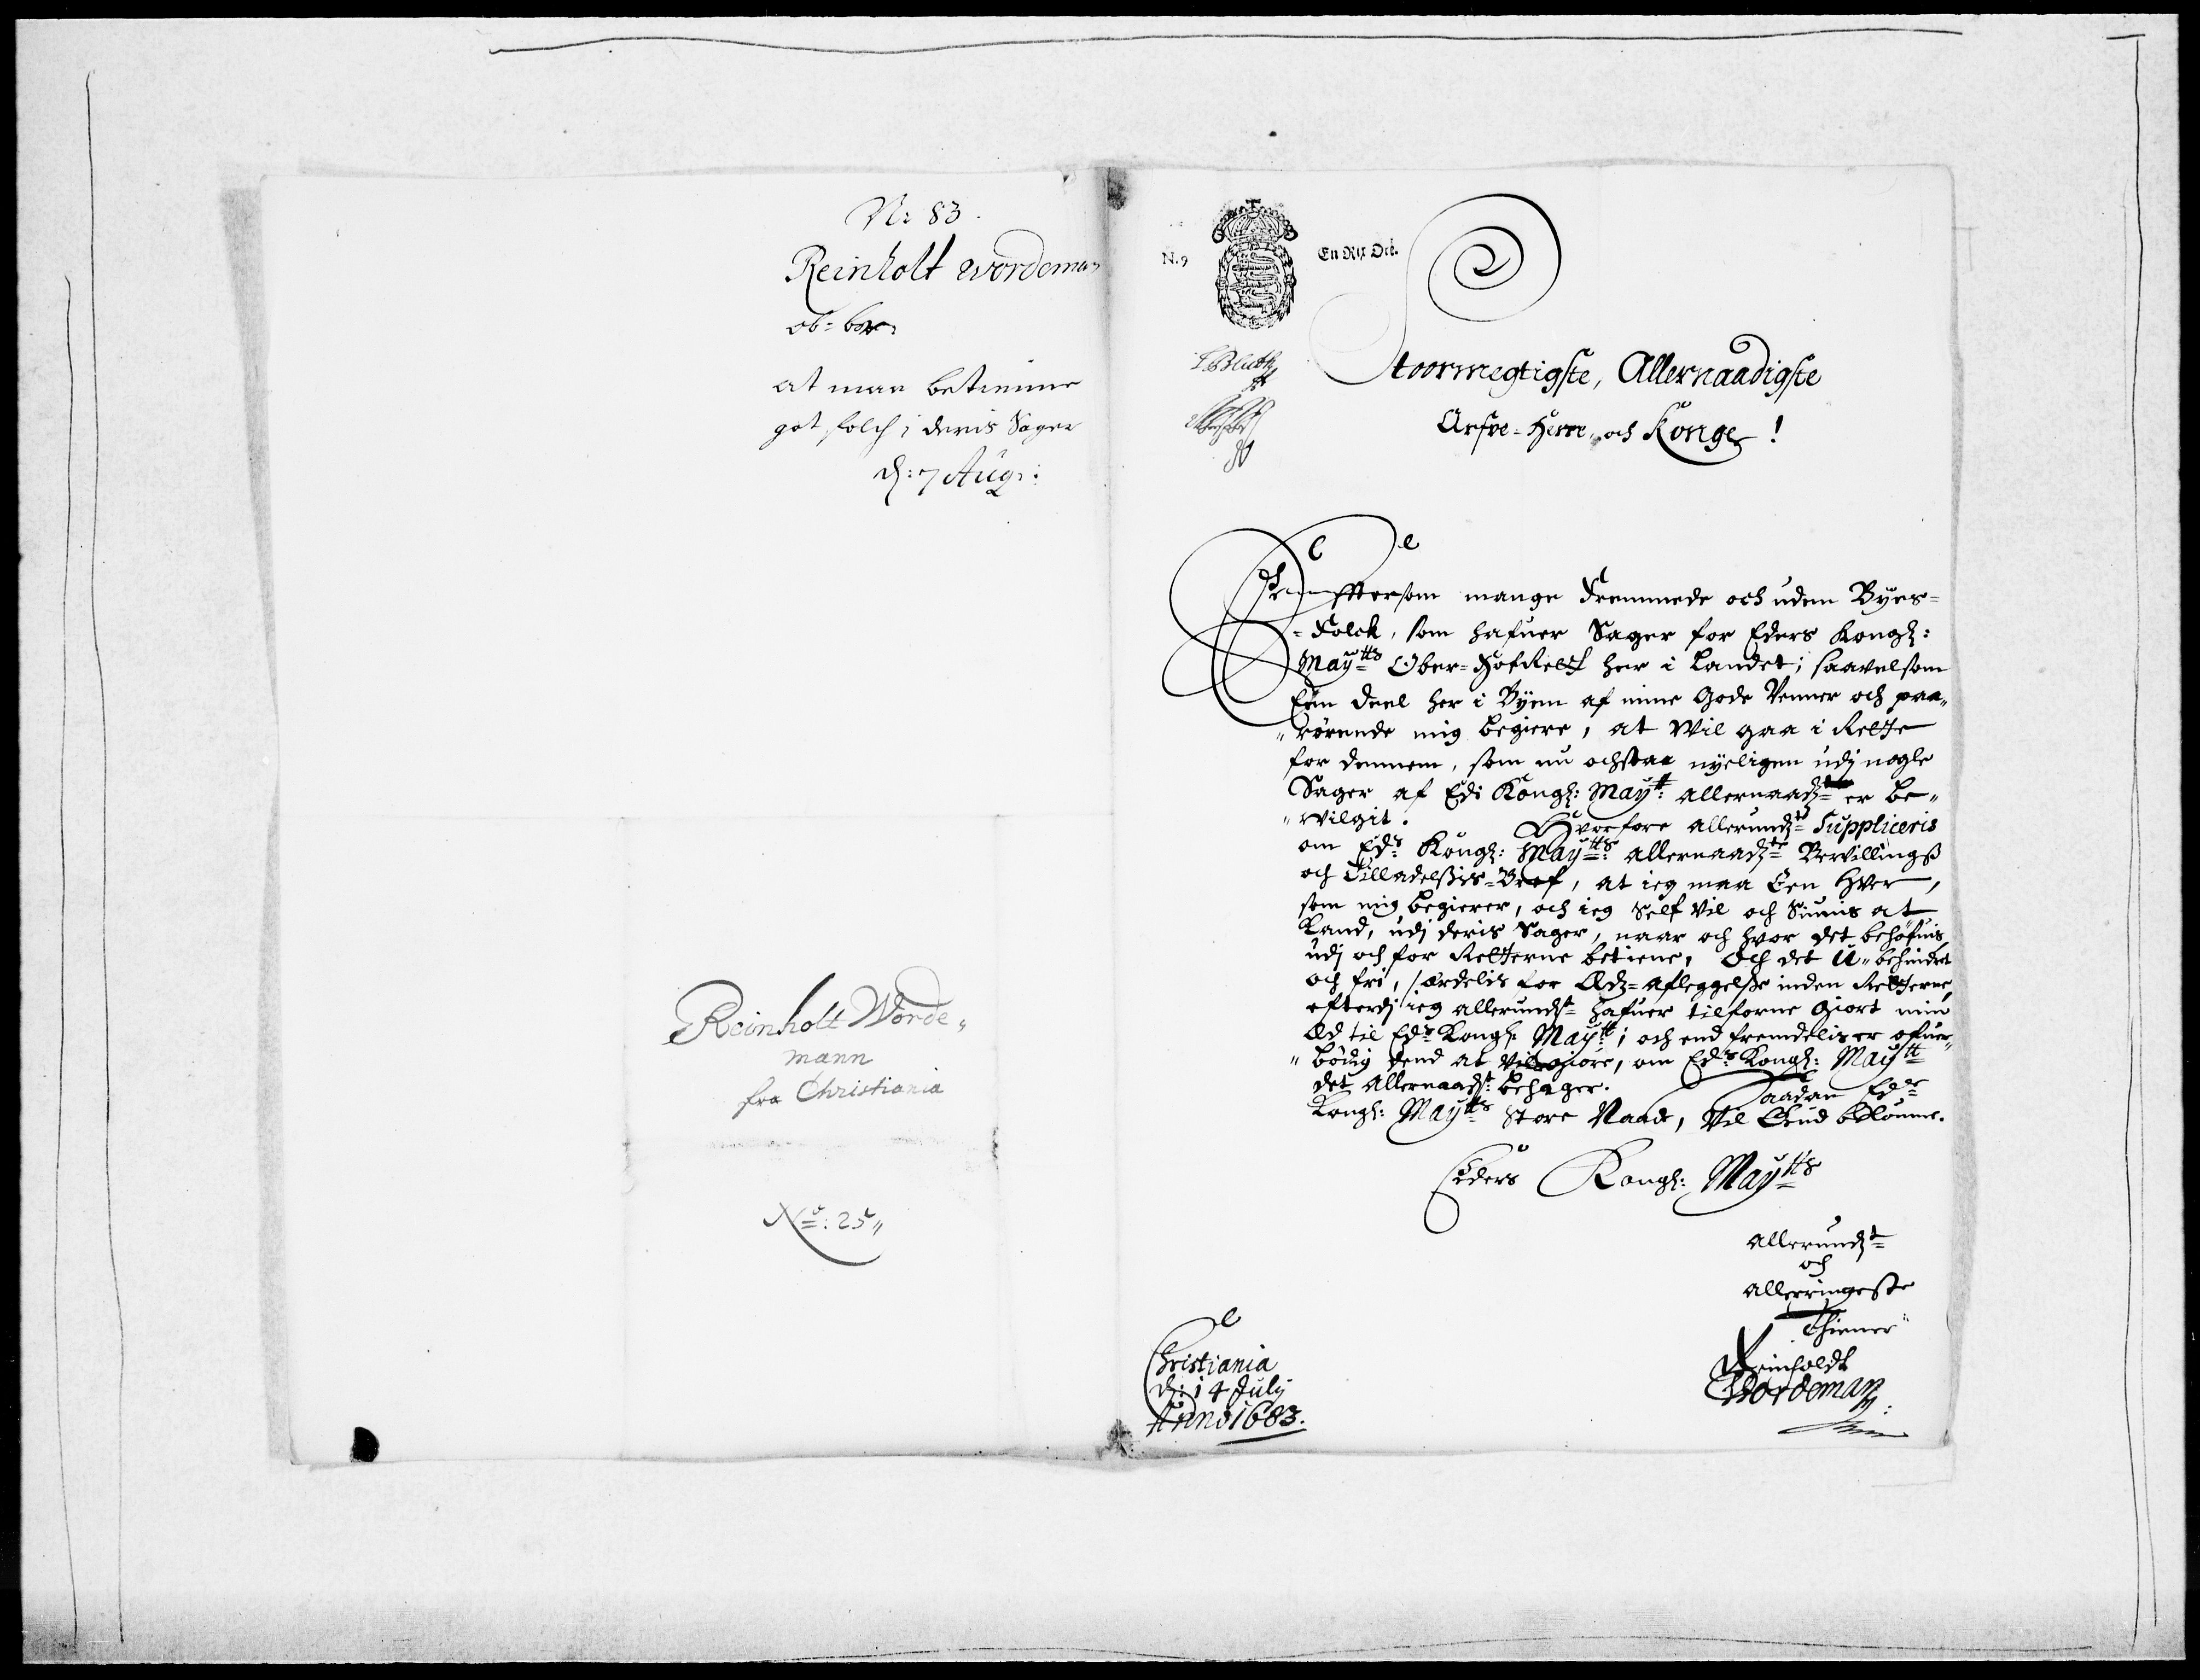 Nr 83.
Reinholt Wordeman
at maa betienne
got folch i deris Sager
d: 7 Aug:
Reinholt Worde„
mann
fra Christiania
No: 25„
N. 9
En Rix Dlr.
Stoormegtigste, Allernaadigste
Arfve-Herre, och Konge!
Efftersom mange Fremmede och uden Byes-
-Folck, som hafuer Sager for Eders Kongl:
Maytts Ober-HofRett her i Landet; saavelsom
Een deel her i Byen af mine Gode Venner och paa„
„rørende mig begiere, at Wil gaa i Rette
for dennem, som nu ochsaa nyeligen udj nogle
Sager af Eds Kongl: Maytt: allernaadst er be„
„Wilgit. Hvorfore allerundst Suppliceris
om Eds Kongl: Maytts: allernaadste Bevillings
och Tilladelsis-Bref, at ieg maa Een hver,
som mig begierer, och ieg Self Vil och Siunis at
Kand, udj deris Sager, naar och hvor det behøfuis,
udj och for Retterne betiene, Och det U-behindret
och fri, særdelis for Æds-afleggelse inden Retterne,
efterdj ieg allerundst hafuer tilforne Giort min
Æd til Eds Kongl: Maytt; och end fremdelis er ofuer„
„bødig dend at Vil giøre, om Eds Kongl: Maytt
det Allernaadst: behager. Saadan Eds
Kongl: Maytts Store Naade, Vil Gud belønne.
Eders Kongl: Maytts
Allerundst
och
Allerringeste
Thiener
Reinholdt
Wordeman
Christiania
d: 14 July
Anno 1683.